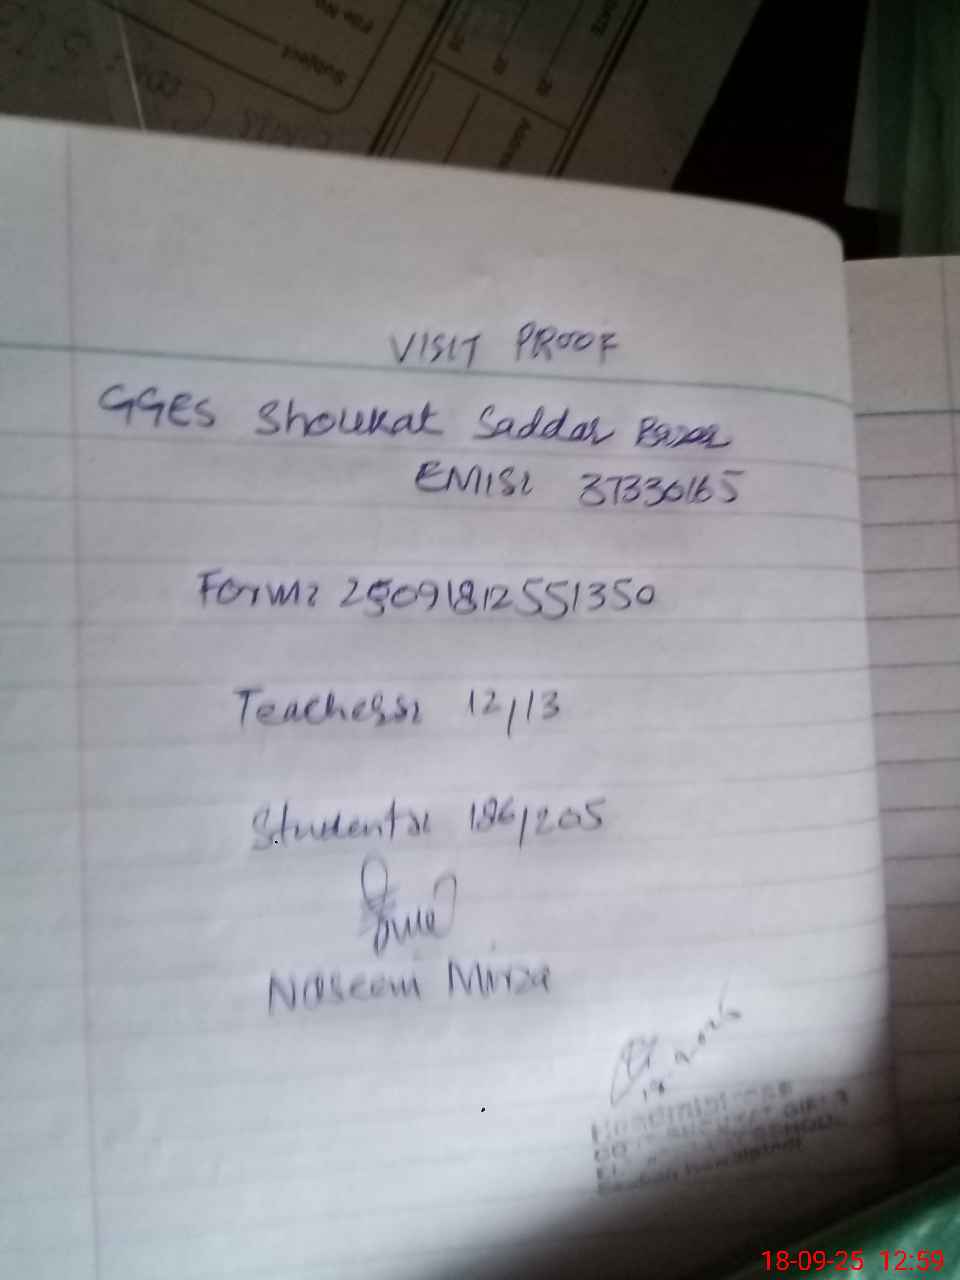 Subject
VISIT PROOF
GGES Shoukat Saddar Bazar
EMIS: 37330165
Form: 25091812551350
Teachers: 12/13
Students: 186/205
Naseem Mirza
Headmistress
18-09-25 12:59